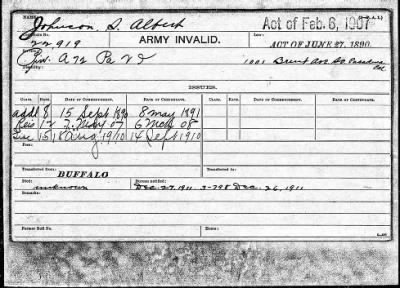 NAME.
Johnson, S. Albert
Act of Feb. 6, 1907
ARMY INVALID.
22,919
Law:
ACT OF JUNE 27, 1890.
Pvt. A 72 Pa V I
Identity:
1001 Brent Ave So Pasadena
Cal
ISSUES.
CLASS. RATE. DATE OF COMMENCEMENT. DATE OF CERTIFICATE. CLASS. RATE. DATE OF COMMENCEMENT. DATE OF CERTIFICATE.
addl 8 15 Sept 1890 8 may 1891
Reis 12 7 May 07 6 Mch 08
Inc 15 18 Aug 1910 14 Sept 1910
Transferred from: Transferred to:
BUFFALO
Died: Bureau notified:
unknown Dec. 27, 1911. 3-798 Dec. 26, 1911
Remarks:
Former Roll No. Home: